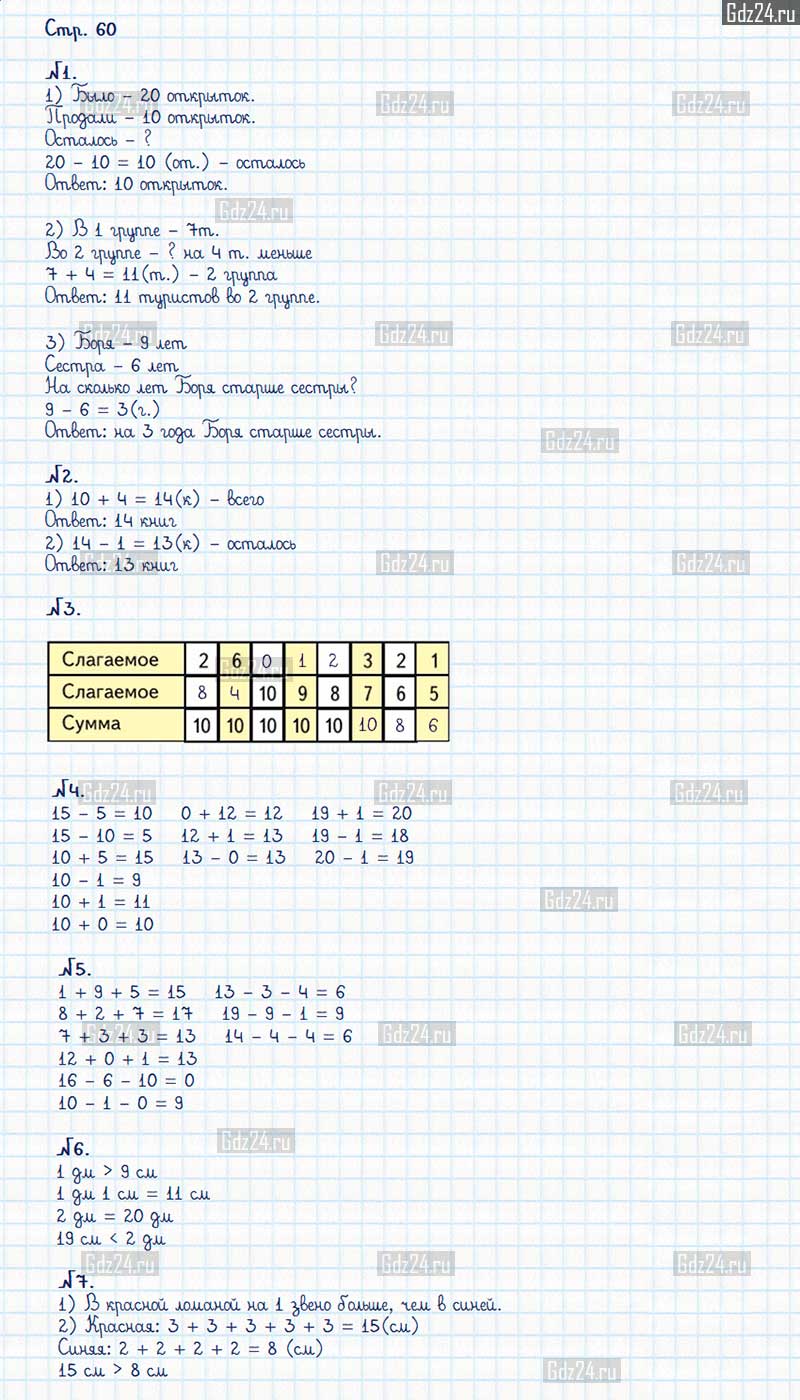 Gdz24.ru
Стр. 60
№1.
1) Было – 20 открыток.
Продали – 10 открыток.
Осталось – ?
20 – 10 = 10 (от.) – осталось
Ответ: 10 открыток.
2) В 1 группе – 7т.
Во 2 группе – ? на 4 т. меньше
7 + 4 = 11(т.) – 2 группа
Ответ: 11 туристов во 2 группе.
3) Боря – 9 лет
Сестра – 6 лет
На сколько лет Боря старше сестры?
9 – 6 = 3(г.)
Ответ: на 3 года Боря старше сестры.
№2.
1) 10 + 4 = 14(к) – всего
Ответ: 14 книг
2) 14 – 1 = 13(к) – осталось
Ответ: 13 книг
№3.
Слагаемое 2 6 0 1 2 3 2 1
Слагаемое 8 4 10 9 8 7 6 5
Сумма 10 10 10 10 10 10 8 6
№4.
15 – 5 = 10 0 + 12 = 12 19 + 1 = 20
15 – 10 = 5 12 + 1 = 13 19 – 1 = 18
10 + 5 = 15 13 – 0 = 13 20 – 1 = 19
10 – 1 = 9
10 + 1 = 11
10 + 0 = 10
№5.
1 + 9 + 5 = 15 13 – 3 – 4 = 6
8 + 2 + 7 = 17 19 – 9 – 1 = 9
7 + 3 + 3 = 13 14 – 4 – 4 = 6
12 + 0 + 1 = 13
16 – 6 – 10 = 0
10 – 1 – 0 = 9
№6.
1 дм > 9 см
1 дм 1 см = 11 см
2 дм = 20 дм
19 см < 2 дм
№7.
1) В красной ломаной на 1 звено больше, чем в синей.
2) Красная: 3 + 3 + 3 + 3 + 3 = 15(см)
Синяя: 2 + 2 + 2 + 2 = 8 (см)
15 см > 8 см